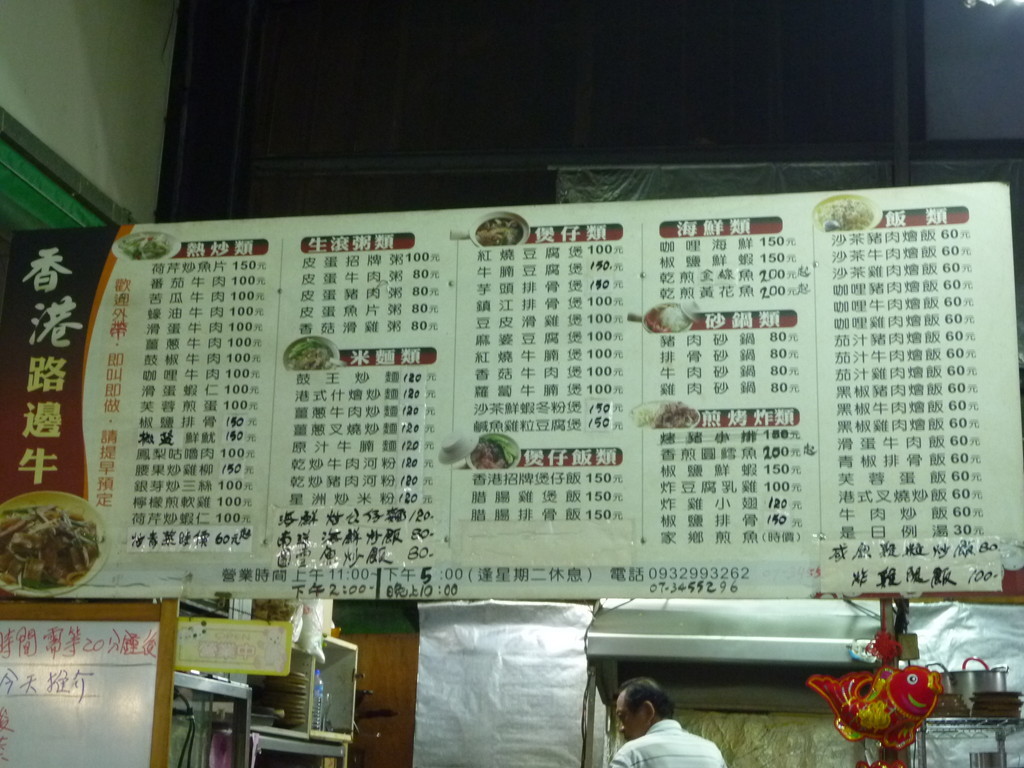 香港路邊牛
歡迎外帶，即叫即做，請提早預定
熱炒類
荷芹炒魚片 150元
番茄牛肉 100元
苦瓜牛肉 100元
蠔油牛肉 100元
滑蛋牛肉 100元
薑蔥牛肉 100元
鼓椒牛肉 100元
咖哩牛肉 100元
滑蛋蝦仁 100元
芙蓉煎蛋 100元
椒鹽排骨 150元
椒鹽鮮魷 150元
鳳梨咕嚕肉 100元
腰果炒雞柳 150元
銀芽炒三絲 100元
檸檬煎軟雞 100元
荷芹炒蝦仁 100元
60元起
生滾粥類
皮蛋招牌粥 100元
皮蛋牛肉粥 80元
皮蛋豬肉粥 80元
皮蛋魚片粥 80元
香菇滑雞粥 80元
米麵類
鼓王炒麵 120元
港式什燴炒麵 120元
薑蔥牛肉炒麵 120元
薑蔥叉燒炒麵 120元
原汁牛腩麵 120元
乾炒牛肉河粉 120元
乾炒豬肉河粉 120元
星洲炒米粉 120元
海鮮炒公仔麵 120-
南洋海鮮炒飯 80-
鹵蛋魚炒飯 80-
煲仔類
紅燒豆腐煲 100元
牛腩豆腐煲 150元
芋頭排骨煲 150元
鎮江排骨煲 100元
豆皮滑雞煲 100元
麻婆豆腐煲 100元
紅燒牛腩煲 100元
香菇牛肉煲 100元
蘿蔔牛腩煲 100元
沙茶鮮蝦冬粉煲 150元
鹹魚雞粒豆腐煲 150元
煲仔飯類
香港招牌煲仔飯 150元
腊腸雞煲飯 150元
腊腸排骨飯 150元
海鮮類
咖哩海鮮 150元
椒鹽鮮蝦 150元
乾煎金線魚 200元起
乾煎黃花魚 200元起
砂鍋類
豬肉砂鍋 80元
排骨砂鍋 80元
牛肉砂鍋 80元
雞肉砂鍋 80元
煎烤炸類
烤豬小排 180元
香煎圓鱈魚 200元起
椒鹽鮮蝦 150元
炸豆腐乳雞 100元
炸雞小翅 120元
椒鹽排骨 150元
家鄉煎魚(時價)
飯類
沙茶豬肉燴飯 60元
沙茶牛肉燴飯 60元
沙茶雞肉燴飯 60元
咖哩豬肉燴飯 60元
咖哩牛肉燴飯 60元
咖哩雞肉燴飯 60元
茄汁豬肉燴飯 60元
茄汁牛肉燴飯 60元
茄汁雞肉燴飯 60元
黑椒豬肉燴飯 60元
黑椒牛肉燴飯 60元
黑椒雞肉燴飯 60元
滑蛋牛肉飯 60元
青椒排骨飯 60元
芙蓉蛋飯 60元
港式叉燒炒飯 60元
牛肉炒飯 60元
是日例湯 30元
鹹魚雞粒炒飯 80
炸雞腿飯 100-
營業時間 上午11:00-下午5:00 (逢星期二休息) 電話 0932993262
下午2:00- 晚上10:00 07-3455296
時間需等20分鐘後
今天推介
營業中